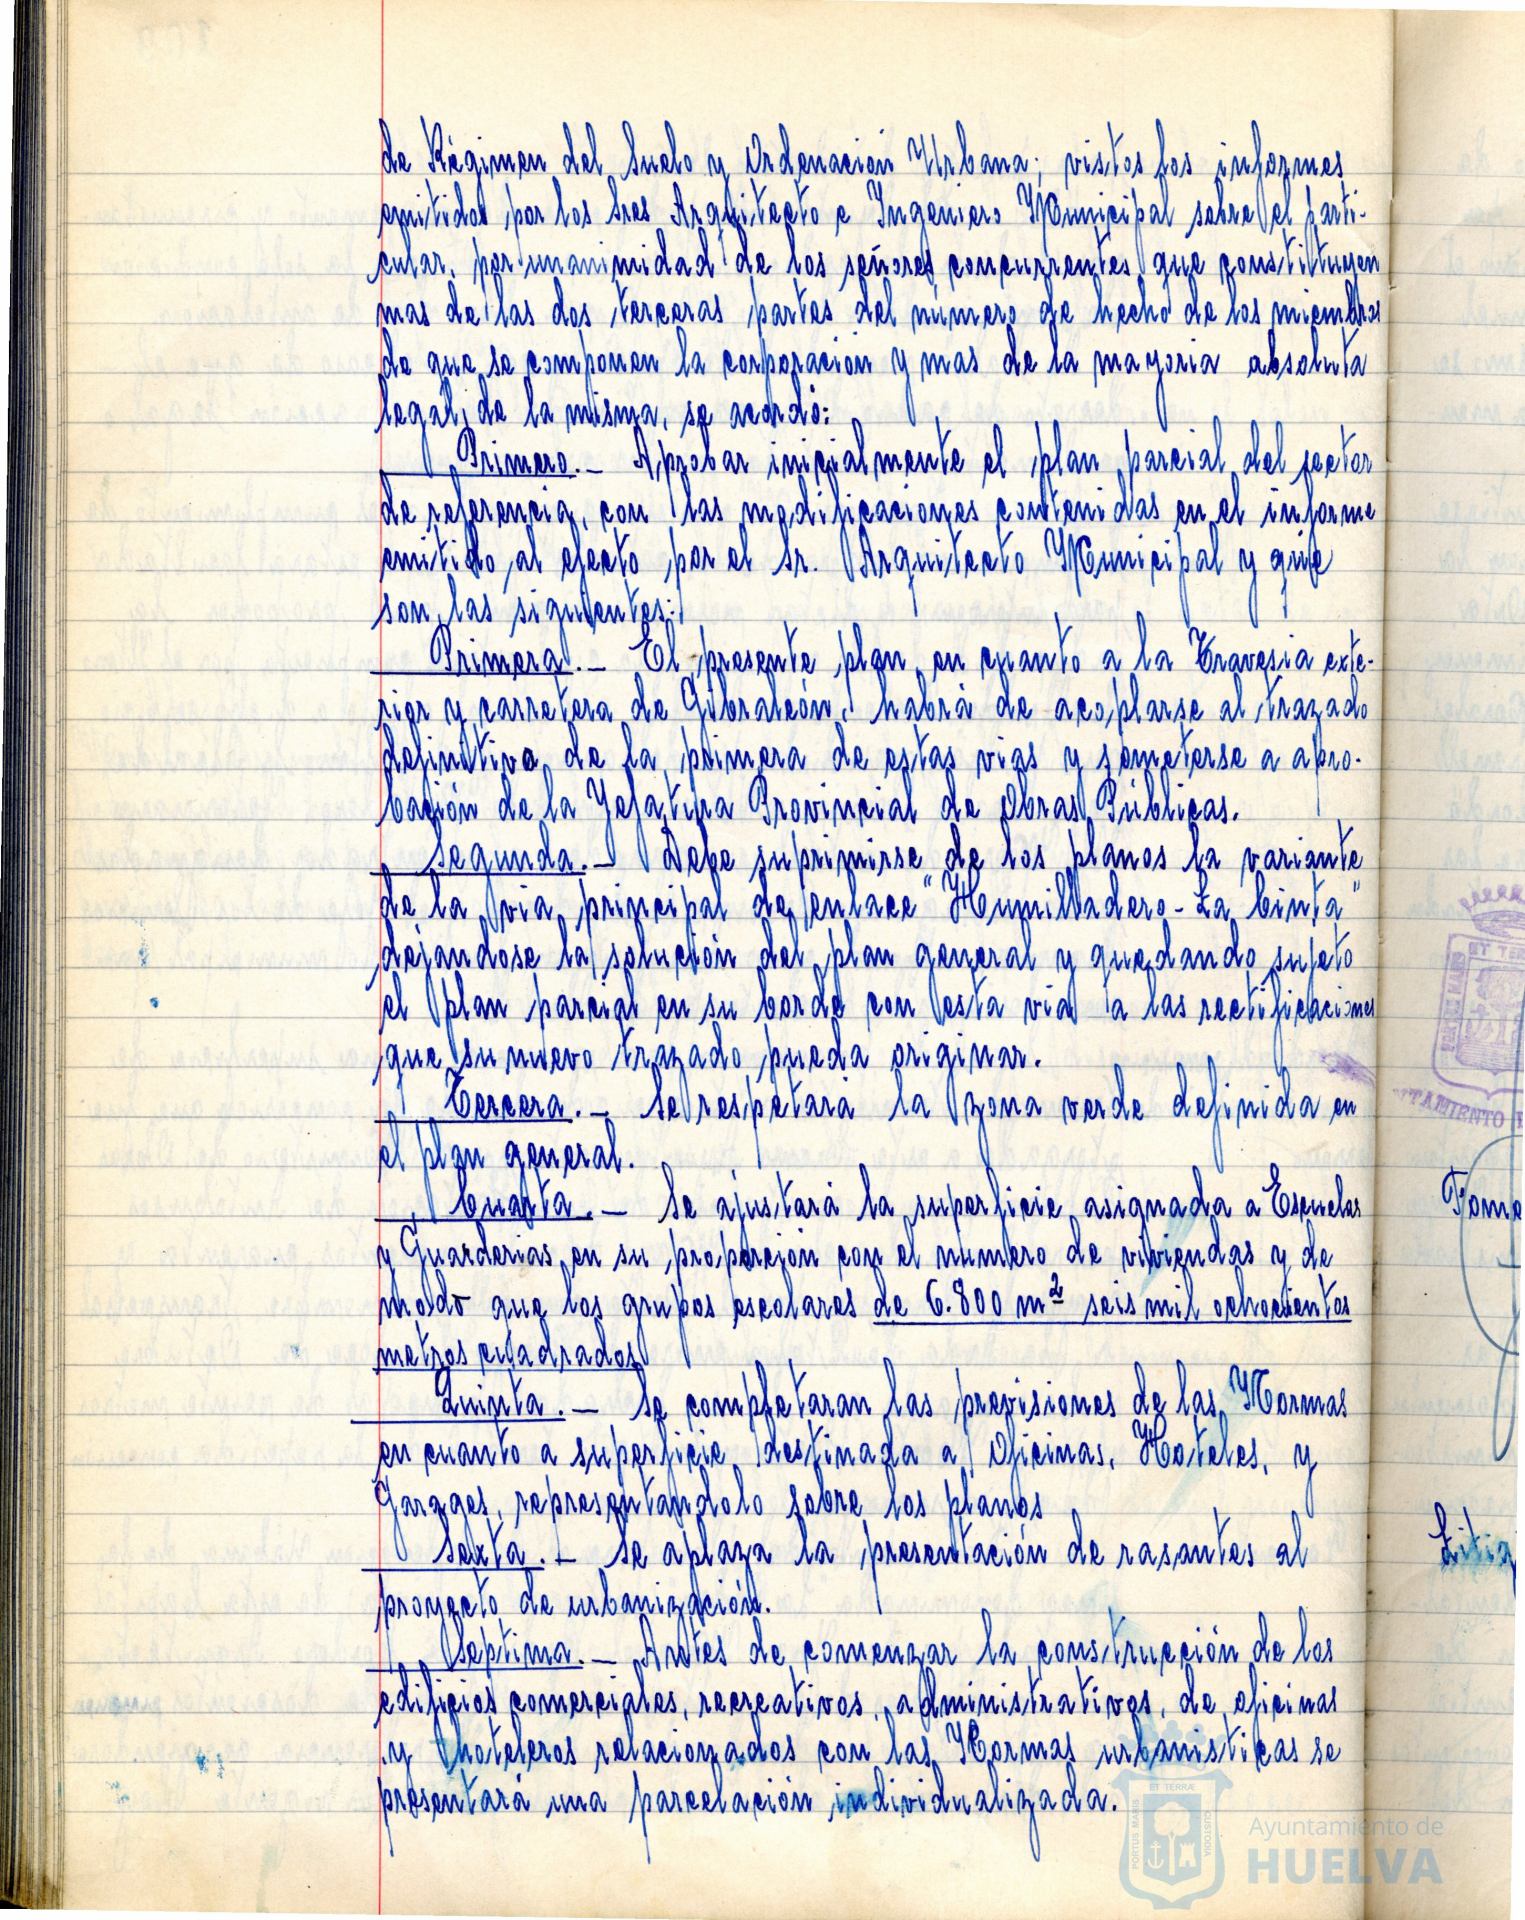 de Régimen del Suelo y Ordenación Urbana; vistos los informes
emitidos por los Sres Arquitecto e Ingeniero Municipal sobre el parti-
cular, por unanimidad de los señores concurrentes que constituyen
mas de las dos terceras partes del número de hecho de los miembros
de que se componen la corporación y mas de la mayoria absoluta
legal, de la misma, se acordó:
Primero.- Aprobar inicialmente el plan parcial del sector
de referencia, con las modificaciones contenidas en el informe
emitido al efecto por el Sr. Arquitecto Municipal y que
son las siguientes:
Primera.- El presente plan en cuanto a la Travesia exte-
rior y carretera de Gibraleón, habrá de acoplarse al trazado
definitivo de la primera de estas vias y someterse a apro-
bación de la Jefatura Provincial de Obras Públicas.
Segunda.- Debe suprimirse de los planos la variante
de la via principal de enlace "Humilladero-La Cinta"
dejandose la solución del plan general y quedando sujeto
el plan parcial en su borde con esta via a las rectificaciones
que su nuevo trazado pueda originar.
Tercera.- Se respetará la zona verde definida en
el plan general.
Cuarta.- Se ajustará la superficie asignada a Escuelas
y Guarderias en su proporción con el numero de viviendas y de
modo que los grupos escolares de 6.800 m² seis mil ochocientos
metros cuadrados
Quinta.- Se completaran las previsiones de las Normas
en cuanto a superficie destinada a Oficinas, Hoteles, y
Garages, representandolo sobre los planos
Sexta.- Se aplaza la presentación de rasantes al
proyecto de urbanización.
Septima.- Antes de comenzar la construcción de los
edificios comerciales, recreativos, administrativos, de oficinas
y hoteleros relacionados con las Normas urbanisticas se
presentará una parcelación individualizada.
ET TERRÆ
PORTUS MARIS
CUSTODIA
Ayuntamiento de
HUELVA